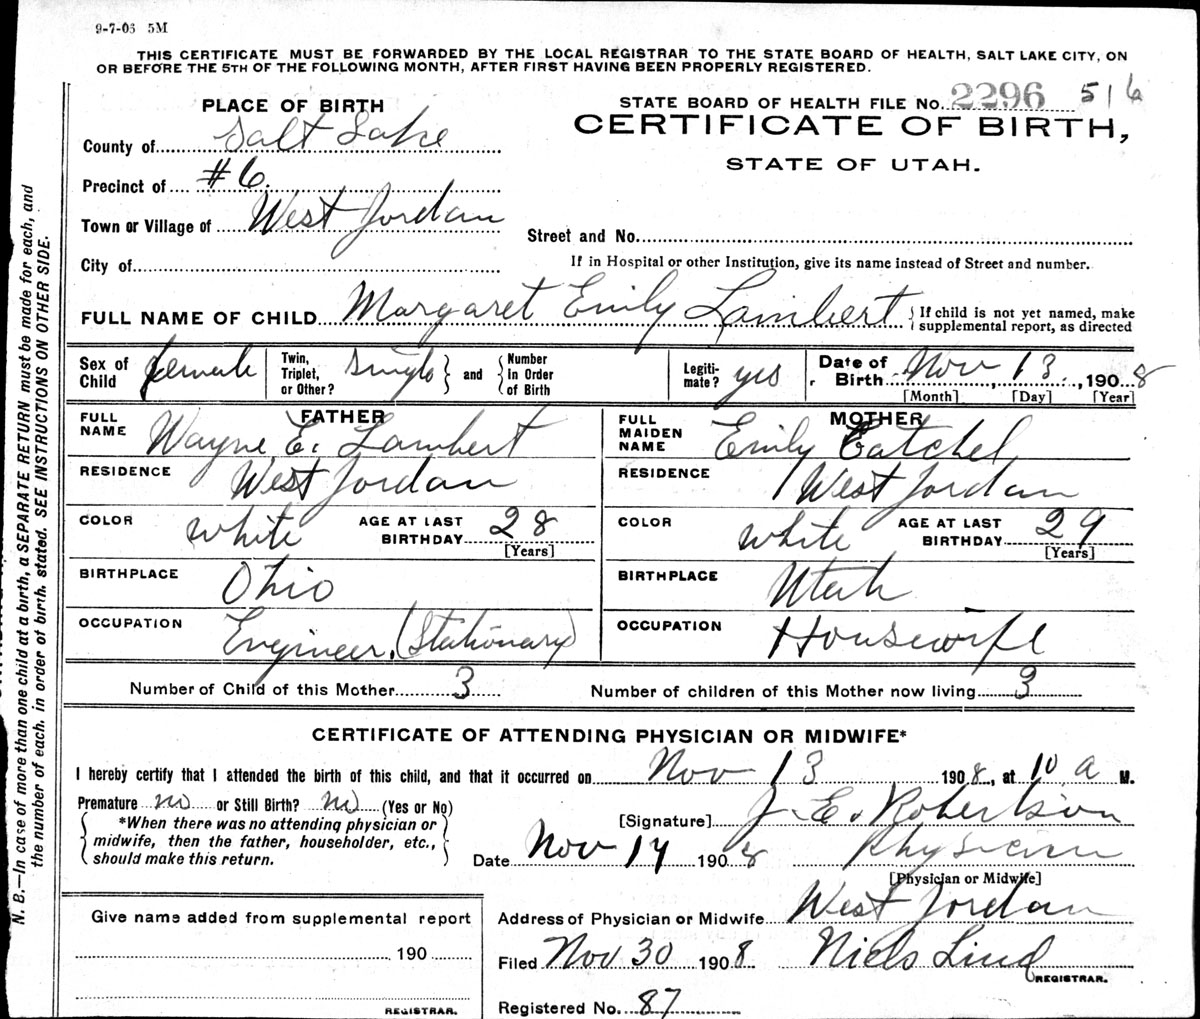 9-7-03 5M
THIS CERTIFICATE MUST BE FORWARDED BY THE LOCAL REGISTRAR TO THE STATE BOARD OF HEALTH, SALT LAKE CITY, ON
OR BEFORE THE 5TH OF THE FOLLOWING MONTH, AFTER FIRST HAVING BEEN PROPERLY REGISTERED.
PLACE OF BIRTH
County of Salt Lake
Precinct of #6.
Town or Village of West Jordan
City of
STATE BOARD OF HEALTH FILE No. 2296 516
CERTIFICATE OF BIRTH,
STATE OF UTAH.
Street and No.
If in Hospital or other Institution, give its name instead of Street and number.
FULL NAME OF CHILD Margaret Emily Lambert { If child is not yet named, make
supplemental report, as directed
Sex of Child female
Twin, Triplet, or Other? single } and { Number in Order of Birth
Legitimate? yes
Date of Birth Nov 13, 1908
[Month] [Day] [Year]
FATHER
FULL NAME Wayne E. Lambert
RESIDENCE West Jordan
COLOR white AGE AT LAST BIRTHDAY 28
[Years]
BIRTHPLACE Ohio
OCCUPATION Engineer. (Stationary)
MOTHER
FULL MAIDEN NAME Emily Gatchel
RESIDENCE West Jordan
COLOR white AGE AT LAST BIRTHDAY 29
[Years]
BIRTHPLACE Utah
OCCUPATION Housewife
Number of Child of this Mother 3 Number of children of this Mother now living 3
CERTIFICATE OF ATTENDING PHYSICIAN OR MIDWIFE*
I hereby certify that I attended the birth of this child, and that it occurred on Nov 13 1908, at 10 a M.
Premature no or Still Birth? no (Yes or No)
{ *When there was no attending physician or
midwife, then the father, householder, etc.,
should make this return. }
[Signature] J. E. Robertson
Date Nov 14 1908 Physician
[Physician or Midwife]
Address of Physician or Midwife West Jordan
Filed Nov 30 1908 Niels Lind
REGISTRAR.
Registered No. 87
Give name added from supplemental report
190
REGISTRAR.
N. B.—In case of more than one child at a birth, a SEPARATE RETURN must be made for each, and
the number of each, in order of birth, stated. SEE INSTRUCTIONS ON OTHER SIDE.